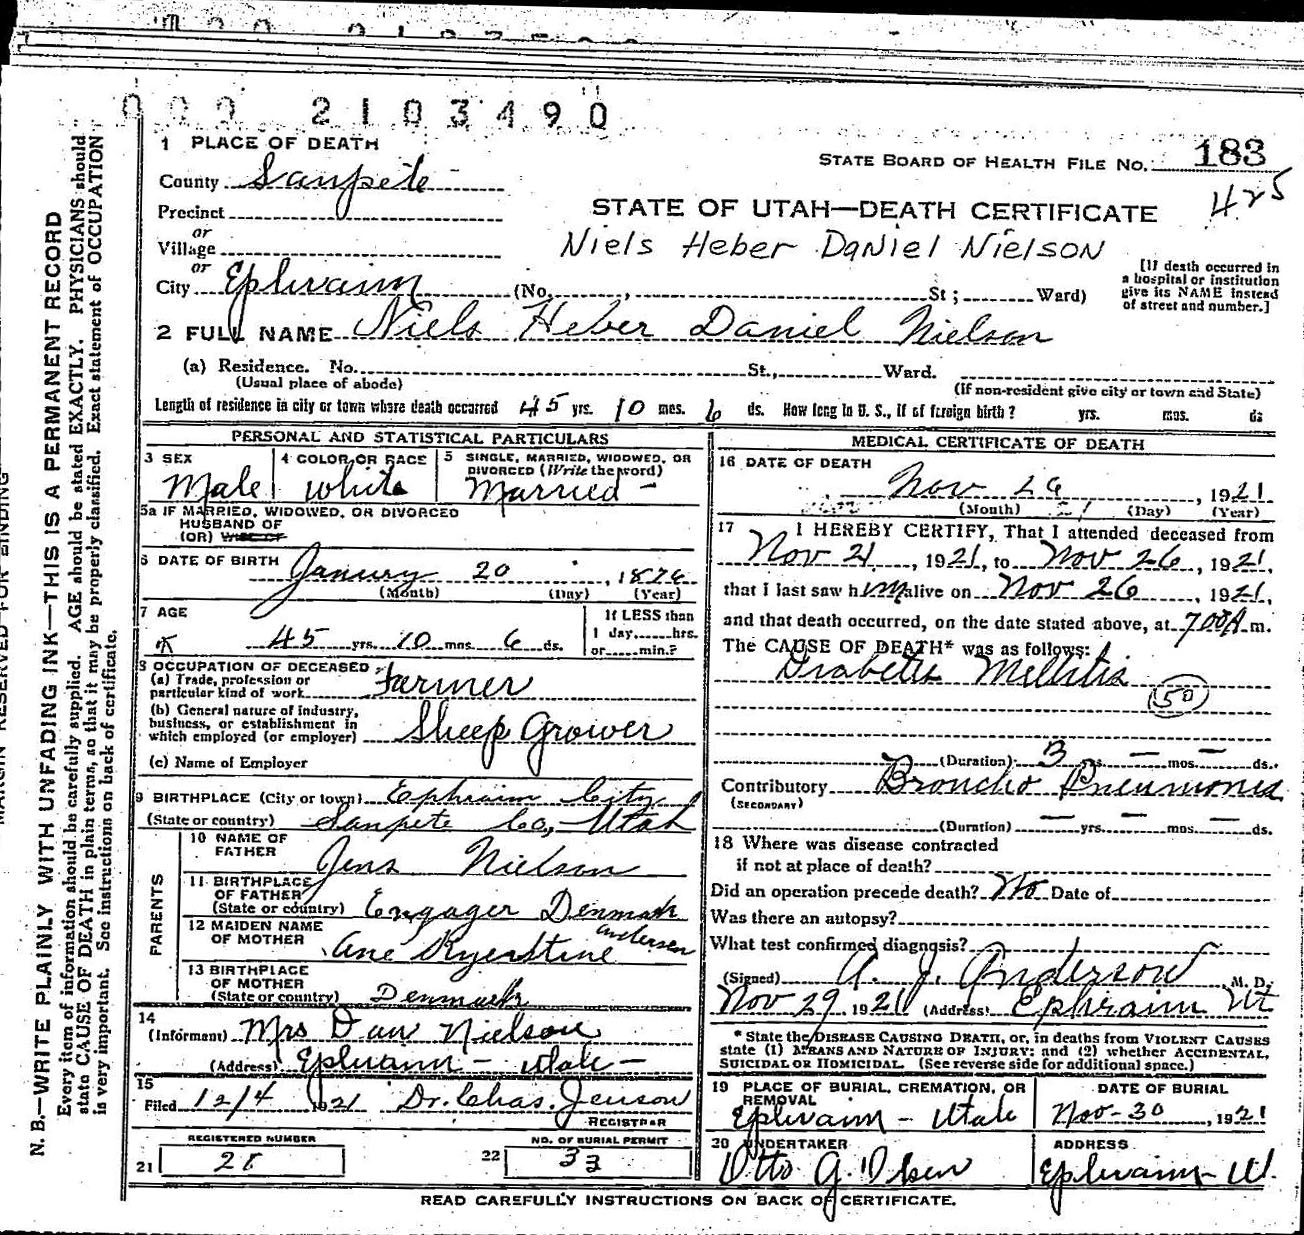 000 2103490
1 PLACE OF DEATH
STATE BOARD OF HEALTH FILE NO. 183
County Sanpete
425
Precinct
STATE OF UTAH—DEATH CERTIFICATE
or
Village
Niels Heber Daniel Nielson
or
City Ephraim (No. , St ; Ward)
[If death occurred in
a hospital or institution
give its NAME instead
of street and number.]
2 FULL NAME Niels Heber Daniel Nielson
(a) Residence. No. St., Ward.
(Usual place of abode) (If non-resident give city or town and State)
Length of residence in city or town where death occurred 45 yrs. 10 mos. 6 ds. How long in U. S., if of foreign birth? yrs. mos. ds
PERSONAL AND STATISTICAL PARTICULARS
3 SEX
Male
4 COLOR OR RACE
White
5 SINGLE, MARRIED, WIDOWED, OR
DIVORCED (Write the word)
Married -
5a IF MARRIED, WIDOWED, OR DIVORCED
HUSBAND OF
(OR) WIFE OF
6 DATE OF BIRTH January 20, 1876
(Month) (Day) (Year)
7 AGE
45 yrs. 10 mos. 6 ds.
If LESS than
1 day......hrs.
or......min.?
8 OCCUPATION OF DECEASED
(a) Trade, profession or
particular kind of work Farmer
(b) General nature of industry,
business, or establishment in
which employed (or employer) Sheep Grower
(c) Name of Employer
9 BIRTHPLACE (City or town) Ephraim City
(State or country) Sanpete Co, Utah
PARENTS
10 NAME OF
FATHER Jens Nielson
11 BIRTHPLACE
OF FATHER
(State or country) Denmark
12 MAIDEN NAME
OF MOTHER Ane Andersen
13 BIRTHPLACE
OF MOTHER
(State or country) Denmark
14
(Informant) Mrs Dan Nielson
(Address) Ephraim - Utah -
15
Filed 12/4 1921 Dr. Chas. Jenson
REGISTRAR
REGISTERED NUMBER
21
NO. OF BURIAL PERMIT
22 33
MEDICAL CERTIFICATE OF DEATH
16 DATE OF DEATH
Nov 26, 1921
(Month) (Day) (Year)
17 I HEREBY CERTIFY, That I attended deceased from
Nov 21, 1921, to Nov 26, 1921,
that I last saw him alive on Nov 26, 1921,
and that death occurred, on the date stated above, at 700A m.
The CAUSE OF DEATH* was as follows:
Diabetes Mellitis
50
(Duration) 3 — mos. — ds.
Contributory Broncho Pneumonia
(SECONDARY)
(Duration) — yrs. — mos — ds.
18 Where was disease contracted
if not at place of death?
Did an operation precede death? No Date of
Was there an autopsy?
What test confirmed diagnosis?
(Signed) A. J. Anderson M. D.
Nov 29 1921 (Address) Ephraim Ut
* State the DISEASE CAUSING DEATH, or, in deaths from VIOLENT CAUSES
state (1) MEANS AND NATURE OF INJURY; and (2) whether ACCIDENTAL,
SUICIDAL OR HOMICIDAL. (See reverse side for additional space.)
19 PLACE OF BURIAL, CREMATION, OR
REMOVAL
Ephraim - Utah
DATE OF BURIAL
Nov-30, 1921
20 UNDERTAKER
Otto G. Olsen
ADDRESS
Ephraim - U.
READ CAREFULLY INSTRUCTIONS ON BACK OF CERTIFICATE.
MARGIN RESERVED FOR BINDING
N. B.—WRITE PLAINLY WITH UNFADING INK—THIS IS A PERMANENT RECORD
Every item of information should be carefully supplied. AGE should be stated EXACTLY. PHYSICIANS should
state CAUSE OF DEATH in plain terms, so that it may be properly classified. Exact statement of OCCUPATION
is very important. See instructions on back of certificate.